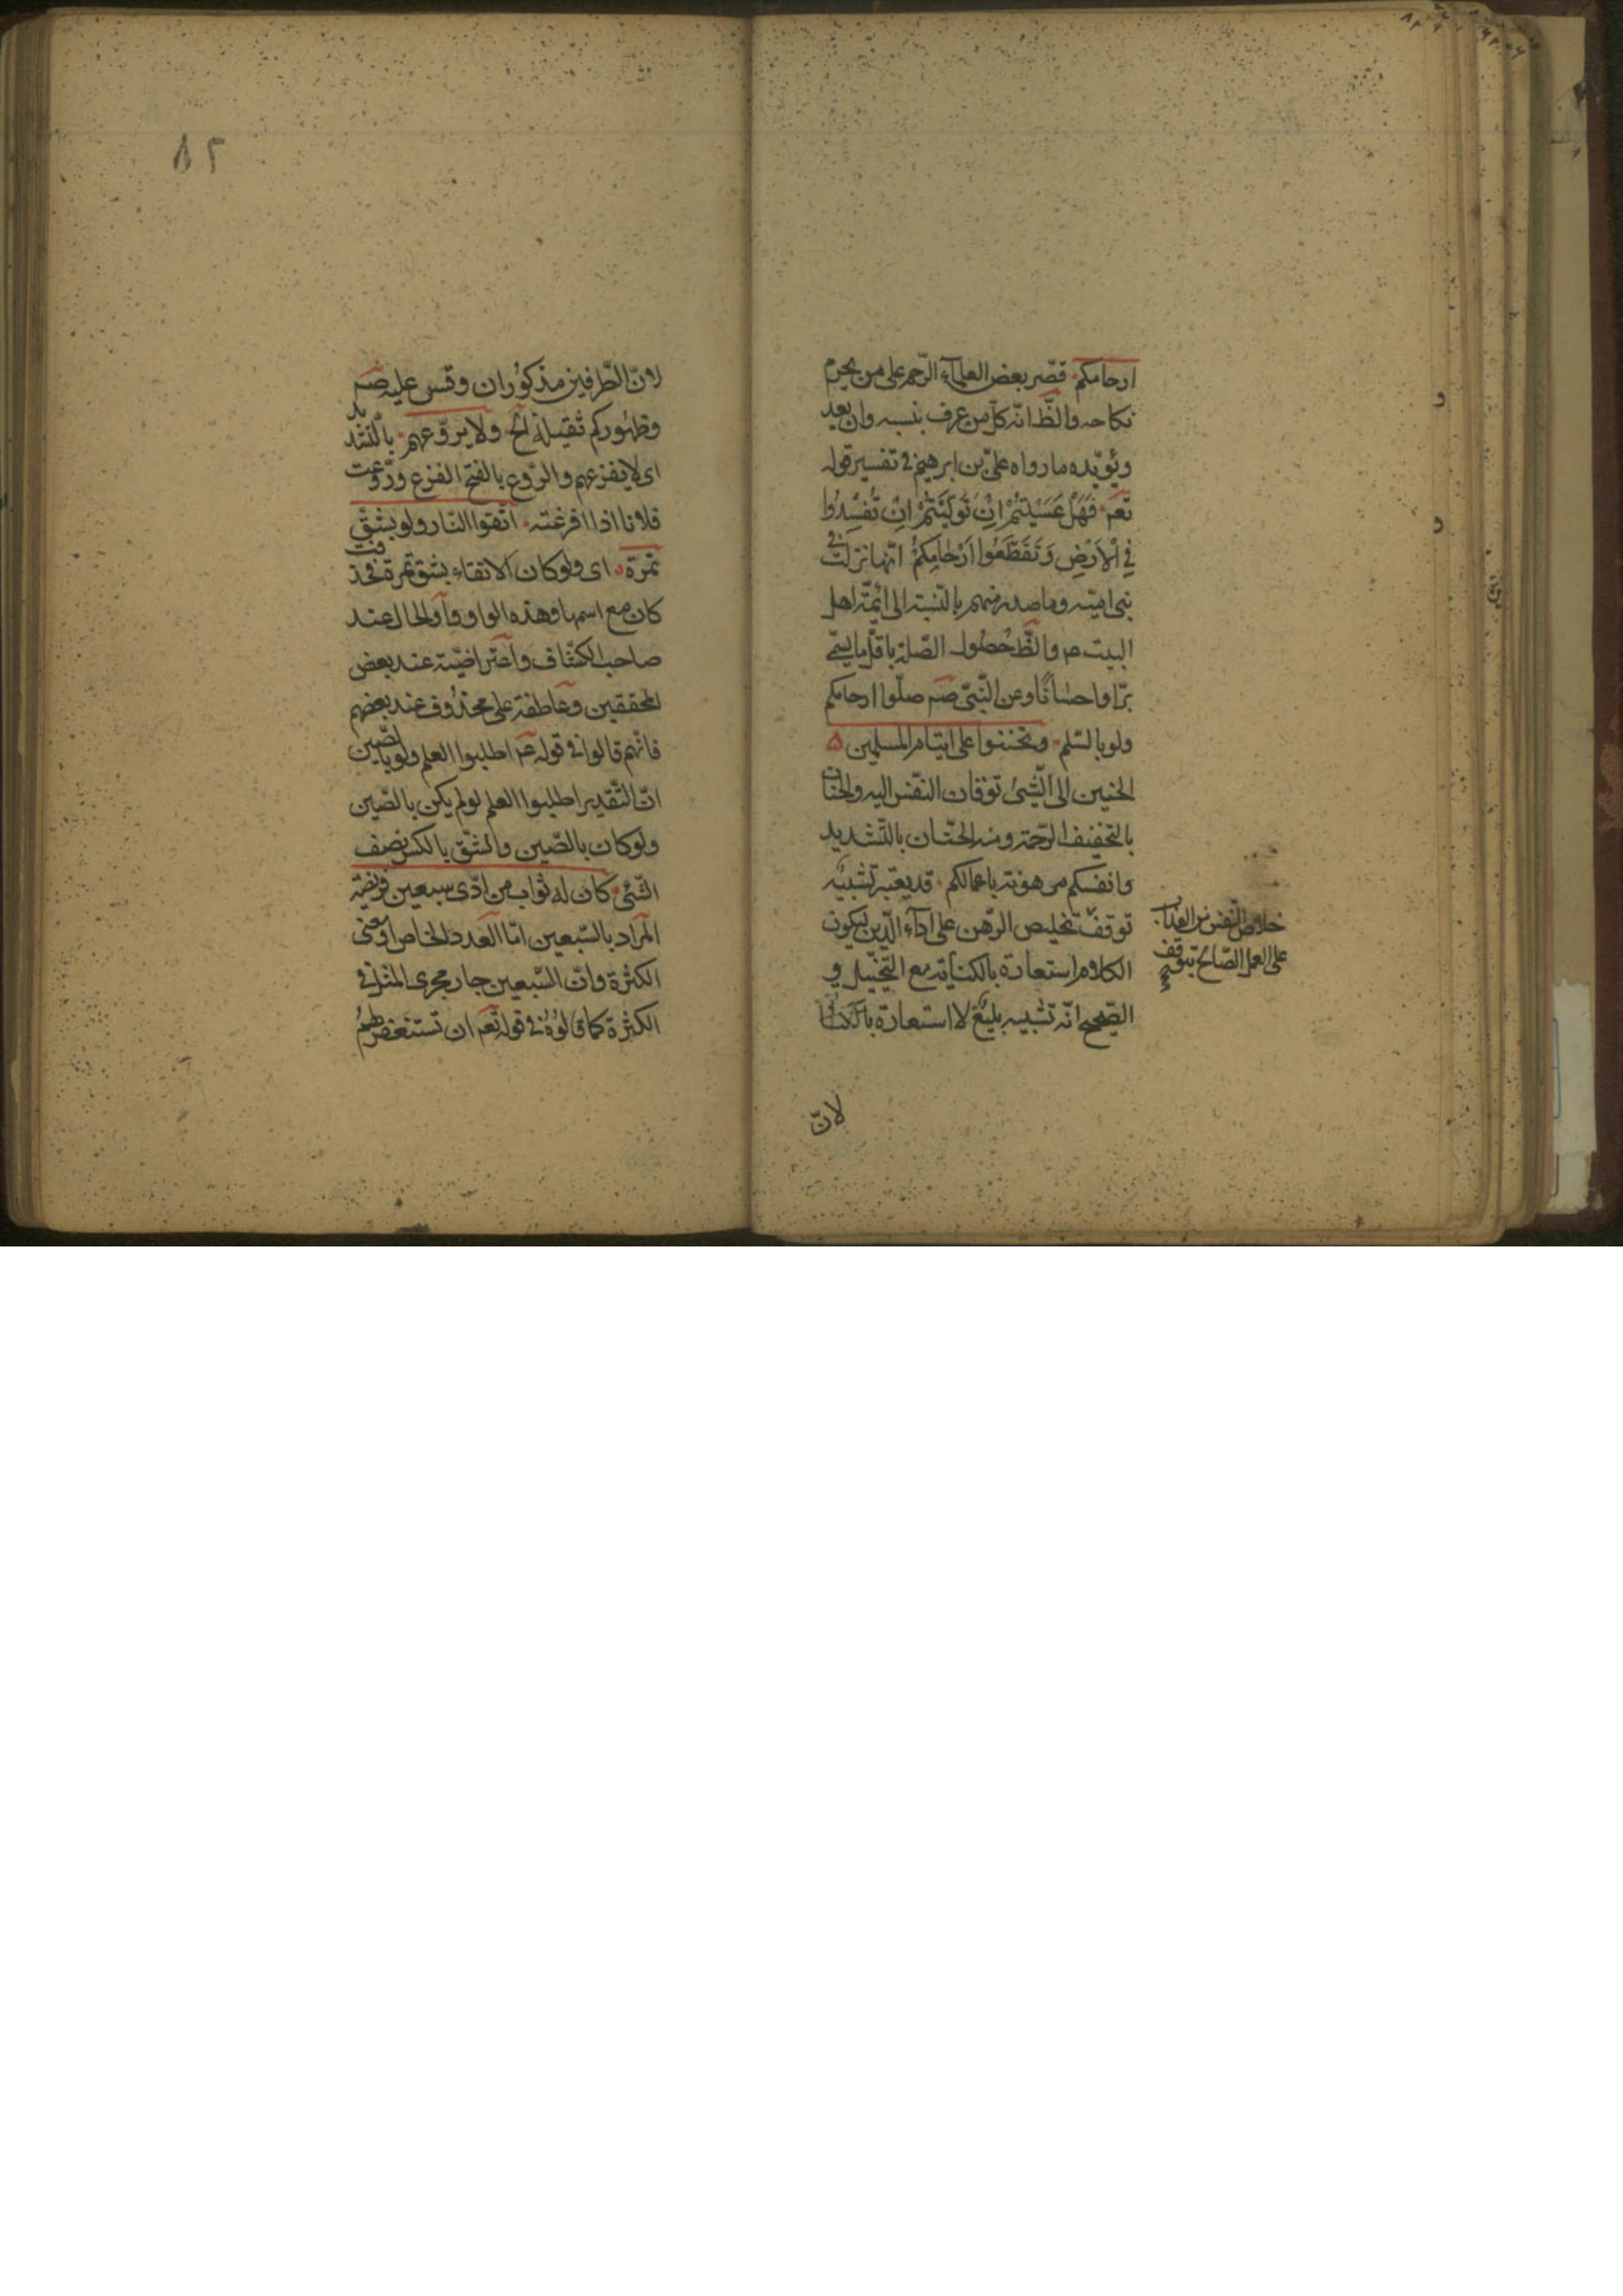 ارحامكم قصّر بعض العلمآء الرّحم على من يحرم
نكاحه والظّ انّه كلّ من عرف بنسبه وان بعد
ويؤيّده ما رواه علىّ بن ابرهيم فى تفسير قوله
تعم فَهَلْ عَسَيْتُمْ اِنْ تَوَلَّيْتُمْ اِنْ تُفْسِدُوا
فِي اْلاَرْضِ وَتَقَطَّعُوا اَرْحٰامَكُمْ انّها نزلت فى
بنى اميّه وما صدر منهم بالنّسبة الى ائمّة اهل
البيت عم والظّ حُصُول الصّلة باقلّ ما يسمّى
برّا واحسٰانًا وعن النّبىّ صم صلّوا ارحامكم
ولو بالسّلم وتحنّنوا على ايتام المسلمين
الحنين الى الشّئ توقان النّفس اليه والحنان
بالتّخفيف الرّحمة ومنه الحنّان بالتّشديد
وانفسكم مرهونة باعمالكم قد يعتبر تشبيه
توقّف تخليص الرّهن على ادآء الدّين ليكون
الكلام استعارة بالكناية مع التّخييل و
الصّحيح انّه تشبيه بليغ لا استعارة بالكناية
خلاص النّفس من العذاب
على العمل الصّالح بتوقّف
لانّ
٨٢
لانّ الطّرفين مذكوُران وقس عليه صم
وظهُوركم ثقيلة الخ ولا يروّعهم بالتّشديد
اى لا يفزعهم والرّوع بالفتح الفزع وروّعت
فلانا اذا افزعته اتّقوا النّار ولو بشقّ
تمرة اى ولو كان الاتقاء بشق تمرة فحذفت
كان مع اسمها وهذه الواو واو الحال عند
صاحب الكشّاف واعتراضيّة عند بعض
المحققين وعاطفة على محذُوف عند بعضهم
فانّهم قالوا فى قوله عم اطلبوا العلم ولو بالصّين
انّ التّقدير اطلبوا العلم لو لم يكن بالصّين
ولو كان بالصّين والشقّ بالكسر نصف
الشّئ كان له ثواب من ادّى سبعين فريضة
المراد بالسّبعين امّا العدد الخاص او معنى
الكثرة وانّ السّبعين جار مجرى المثل فى
الكثرة كما قالوُه فى قوله تعم ان تستغفر لهُمْ